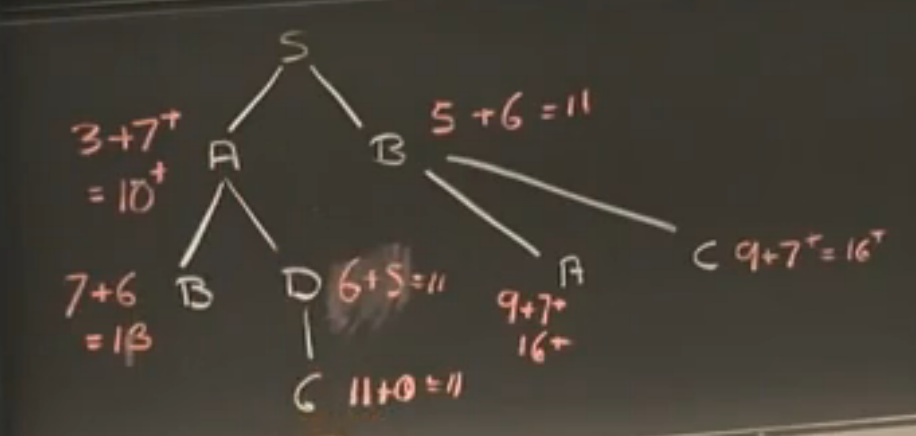 S
3+7+
= 10+
A
B
5+6=11
7+6
=13
B
D
6+5=11
A
9+7+
16+
C
9+7+=16+
G
11+0=11